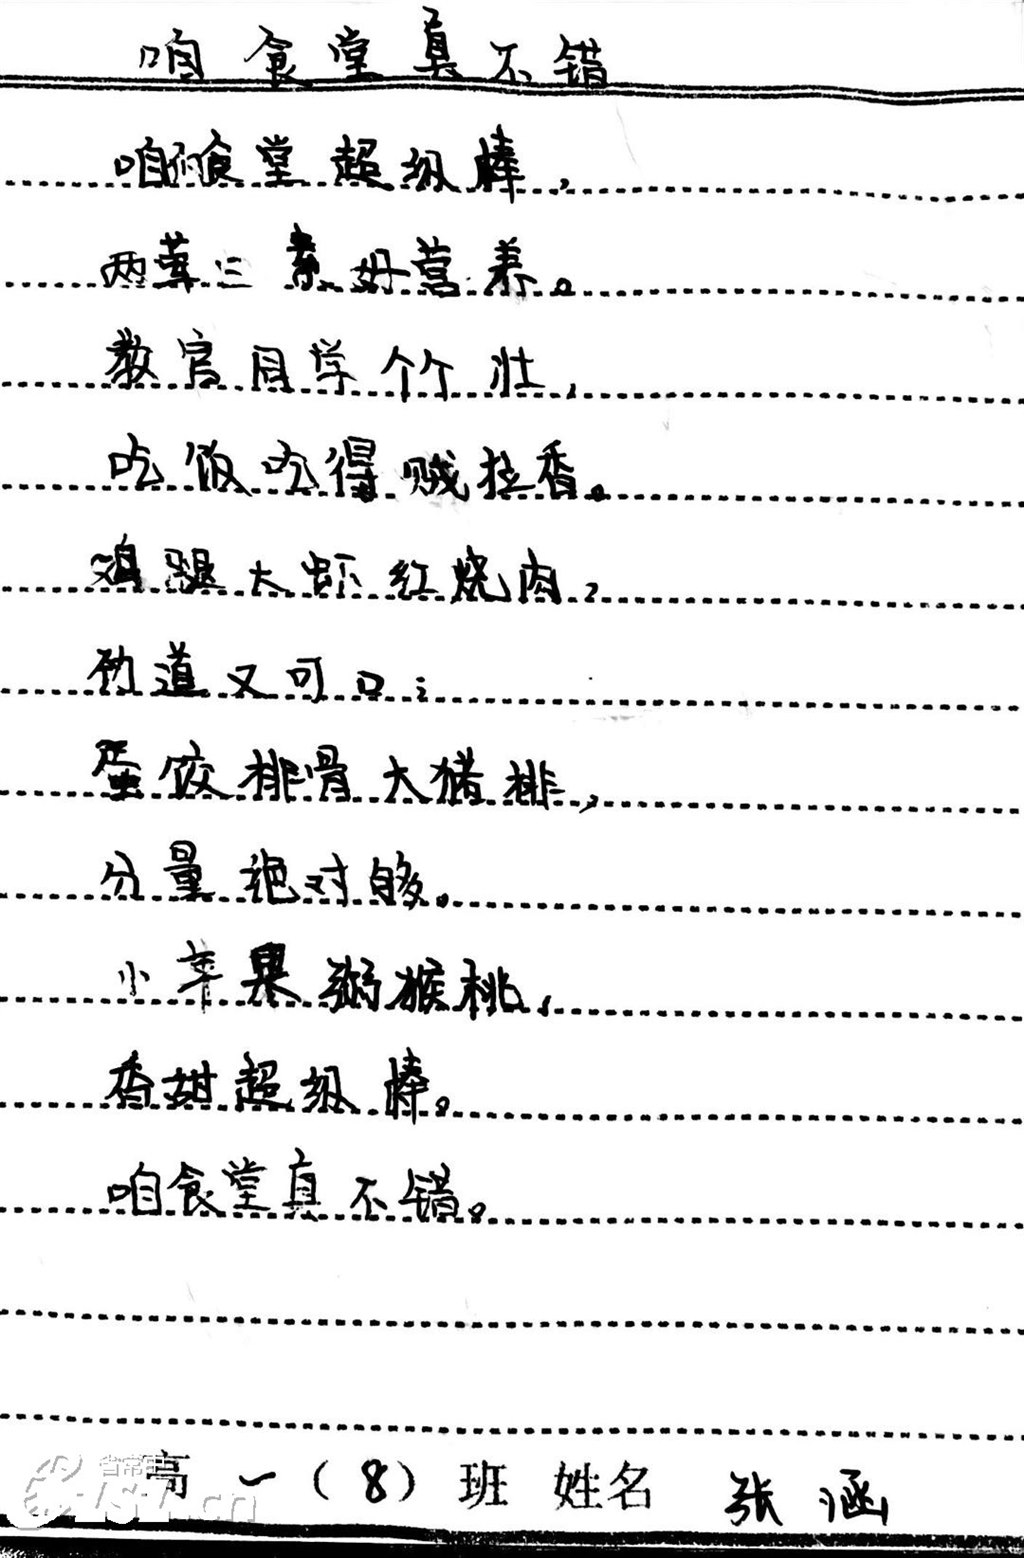 咱食堂真不错
咱的食堂超级棒，
两荤三素好营养。
教官同学个个壮，
吃饭吃得贼拉香。
鸡腿大虾红烧肉，
劲道又可口；
蛋饺排骨大猪排，
分量绝对够。
小苹果弥猴桃，
香甜超级棒。
咱食堂真不错。
高一（8）班 姓名 张涵